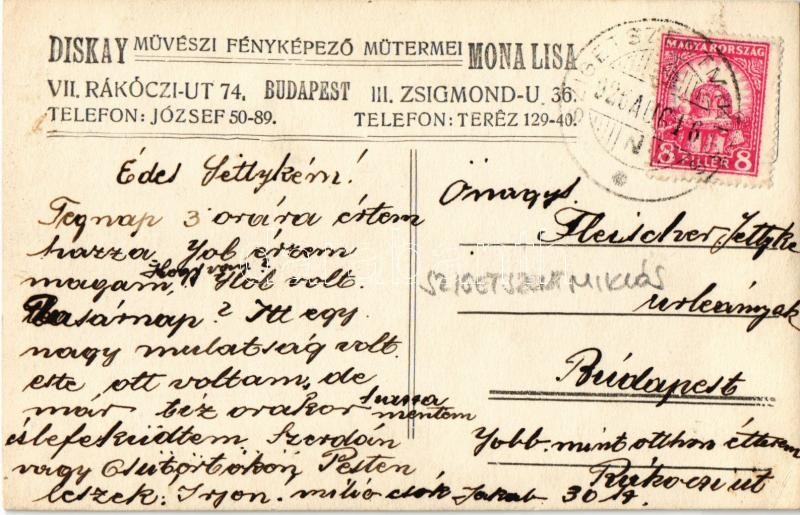 DISKAY MŰVÉSZI FÉNYKÉPEZŐ MŰTERMEI MONA LISA
VII. RÁKÓCZI-UT 74. BUDAPEST III. ZSIGMOND-U. 36.
TELEFON: JÓZSEF 50-89. TELEFON: TERÉZ 129-40.
MAGYARORSZÁG
8 FILLÉR 8
Édes Jettykém!
Tegnap 3 orára értem
haza, Job érzem
magam, Hogy vagy? Hol volt
Vasárnap? Itt egy
nagy mulatság volt.
este ott voltam, de
már tiz orakor haza mentem
és lefeküdtem. Szerdán
vagy Csütörtökön Pesten
leszek. Irjon. milió csók Jakab
Önagys.
Fleischer Jettyke
urleánynak
SZIGETSZENTMIKLÓS
Budapest
Jobb mint otthon étterem
Rákoczi út
30 sz.